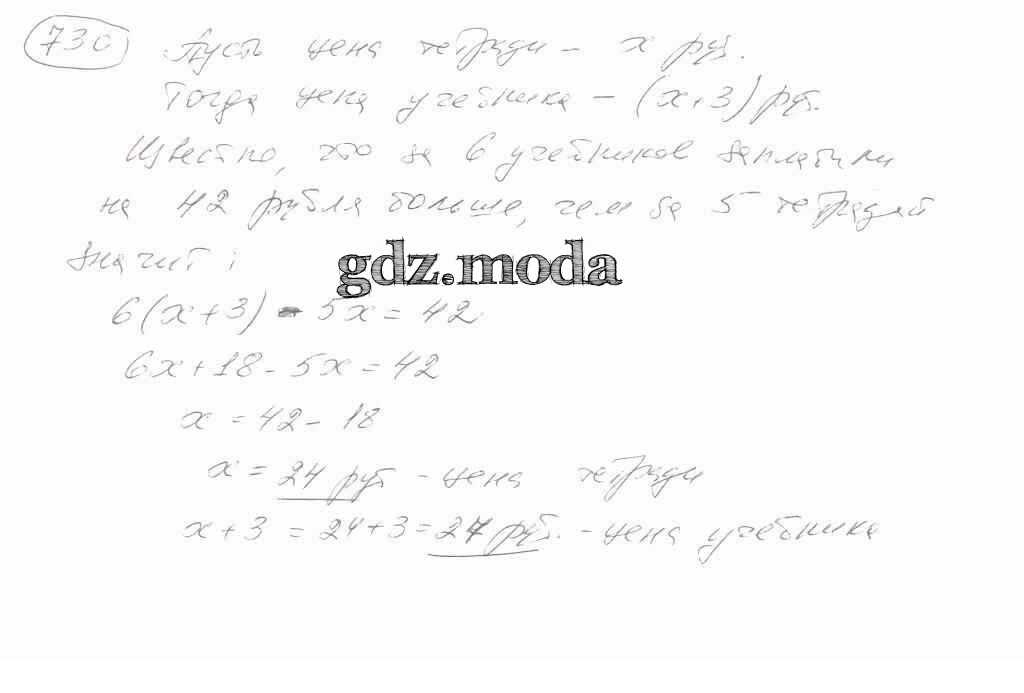 730 Пусть цена тетради – x руб.
Тогда цена учебника – (x+3) руб.
Известно, что за 6 учебников заплатили
на 42 рубля больше, чем за 5 тетрадей
значит:
gdz.moda
6(x+3) - 5x = 42
6x+18-5x=42
x = 42 - 18
x = 24 руб - цена тетради
x+3 = 24+3 = 27 руб. - цена учебника